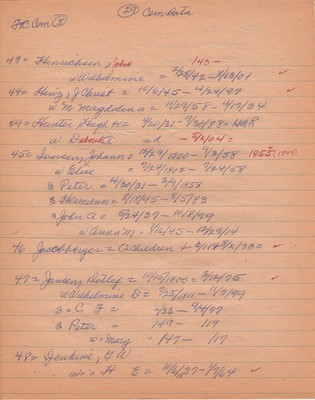 (29) Cem Data
Cem (3)
43 = Hinrichsen, John 143 -
w Wilhelmine = 2/25/42 - 8/13/01
44 = Heinz, J Christ = 10/6/45 - 4/24/97
w M Magdalena = 11/29/58 - 4/17/34
44 = Hunter Hugh H = 4/20/31 - 7/30/88 = WAR
w Deborah = d -
45 = Iversen, Johann = 10/29/1800 - 7/3/58
w Elise = 7/24/1802 - 7/24/58
s Peter = 4/30/31 - 3/4/1858
s Hermann = 8/18/45 - 5/5/93
s John A = 9/24/37 - 10/18/99
w Anna M = 9/16/45 - 12/29/14
46 Jacobberger = (2 Children +
47 = Jansen, Detlef = 10/15/1800 = 3/12/75
w Wilhelmine D = 7/25/1811 - 11/7/99
s = C. F = /33 - 9/4/97
s Peter = 149 - 119
w = Mary = 147 - 117
48 = Jenkins, G W
w = H E = 10/6/27 - 1/9/64